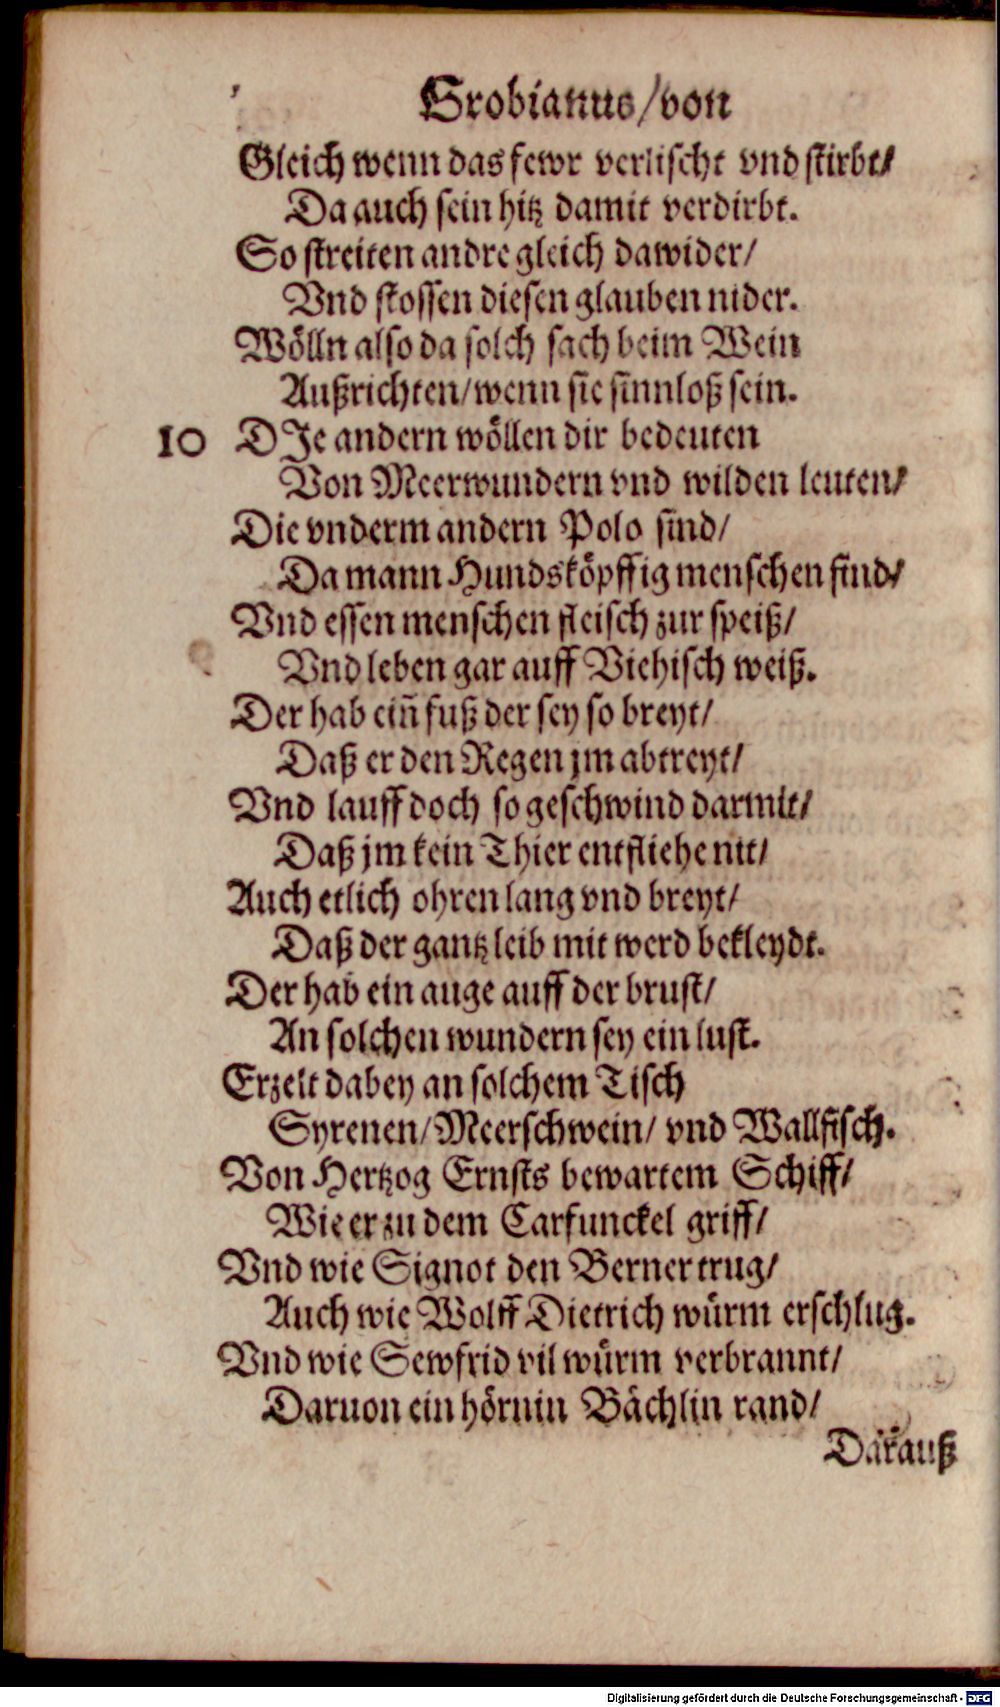 Grobianus/von
Gleich wenn das fewr verlischt vnd stirbt/
Da auch sein hitz damit verdirbt.
So streiten andre gleich dawider/
Vnd stossen diesen glauben nider.
Wölln also da solch sach beim Wein
Außrichten/wenn sie sinnloß sein.
10 DJe andern wöllen dir bedeuten
Von Meerwundern vnd wilden leuten/
Die vnderm andern Polo sind/
Da mann Hundsköpffig menschen find/
Vnd essen menschen fleisch zur speiß/
Vnd leben gar auff Viehisch weiß.
Der hab ein̄ fuß der sey so breyt/
Daß er den Regen jm abtreyt/
Vnd lauff doch so geschwind darmit/
Daß jm kein Thier entfliehe nit/
Auch etlich ohren lang vnd breyt/
Daß der gantz leib mit werd bekleydt.
Der hab ein auge auff der brust/
An solchen wundern sey ein lust.
Erzelt dabey an solchem Tisch
Syrenen/Meerschwein/ vnd Wallfisch.
Von Hertzog Ernsts bewartem Schiff/
Wie er zu dem Carfunckel griff/
Vnd wie Signot den Berner trug/
Auch wie Wolff Dietrich würm erschlug.
Vnd wie Sewfrid vil würm verbrannt/
Daruon ein hörnin Bächlin rand/
Darauß
Digitalisierung gefördert durch die Deutsche Forschungsgemeinschaft - DFG